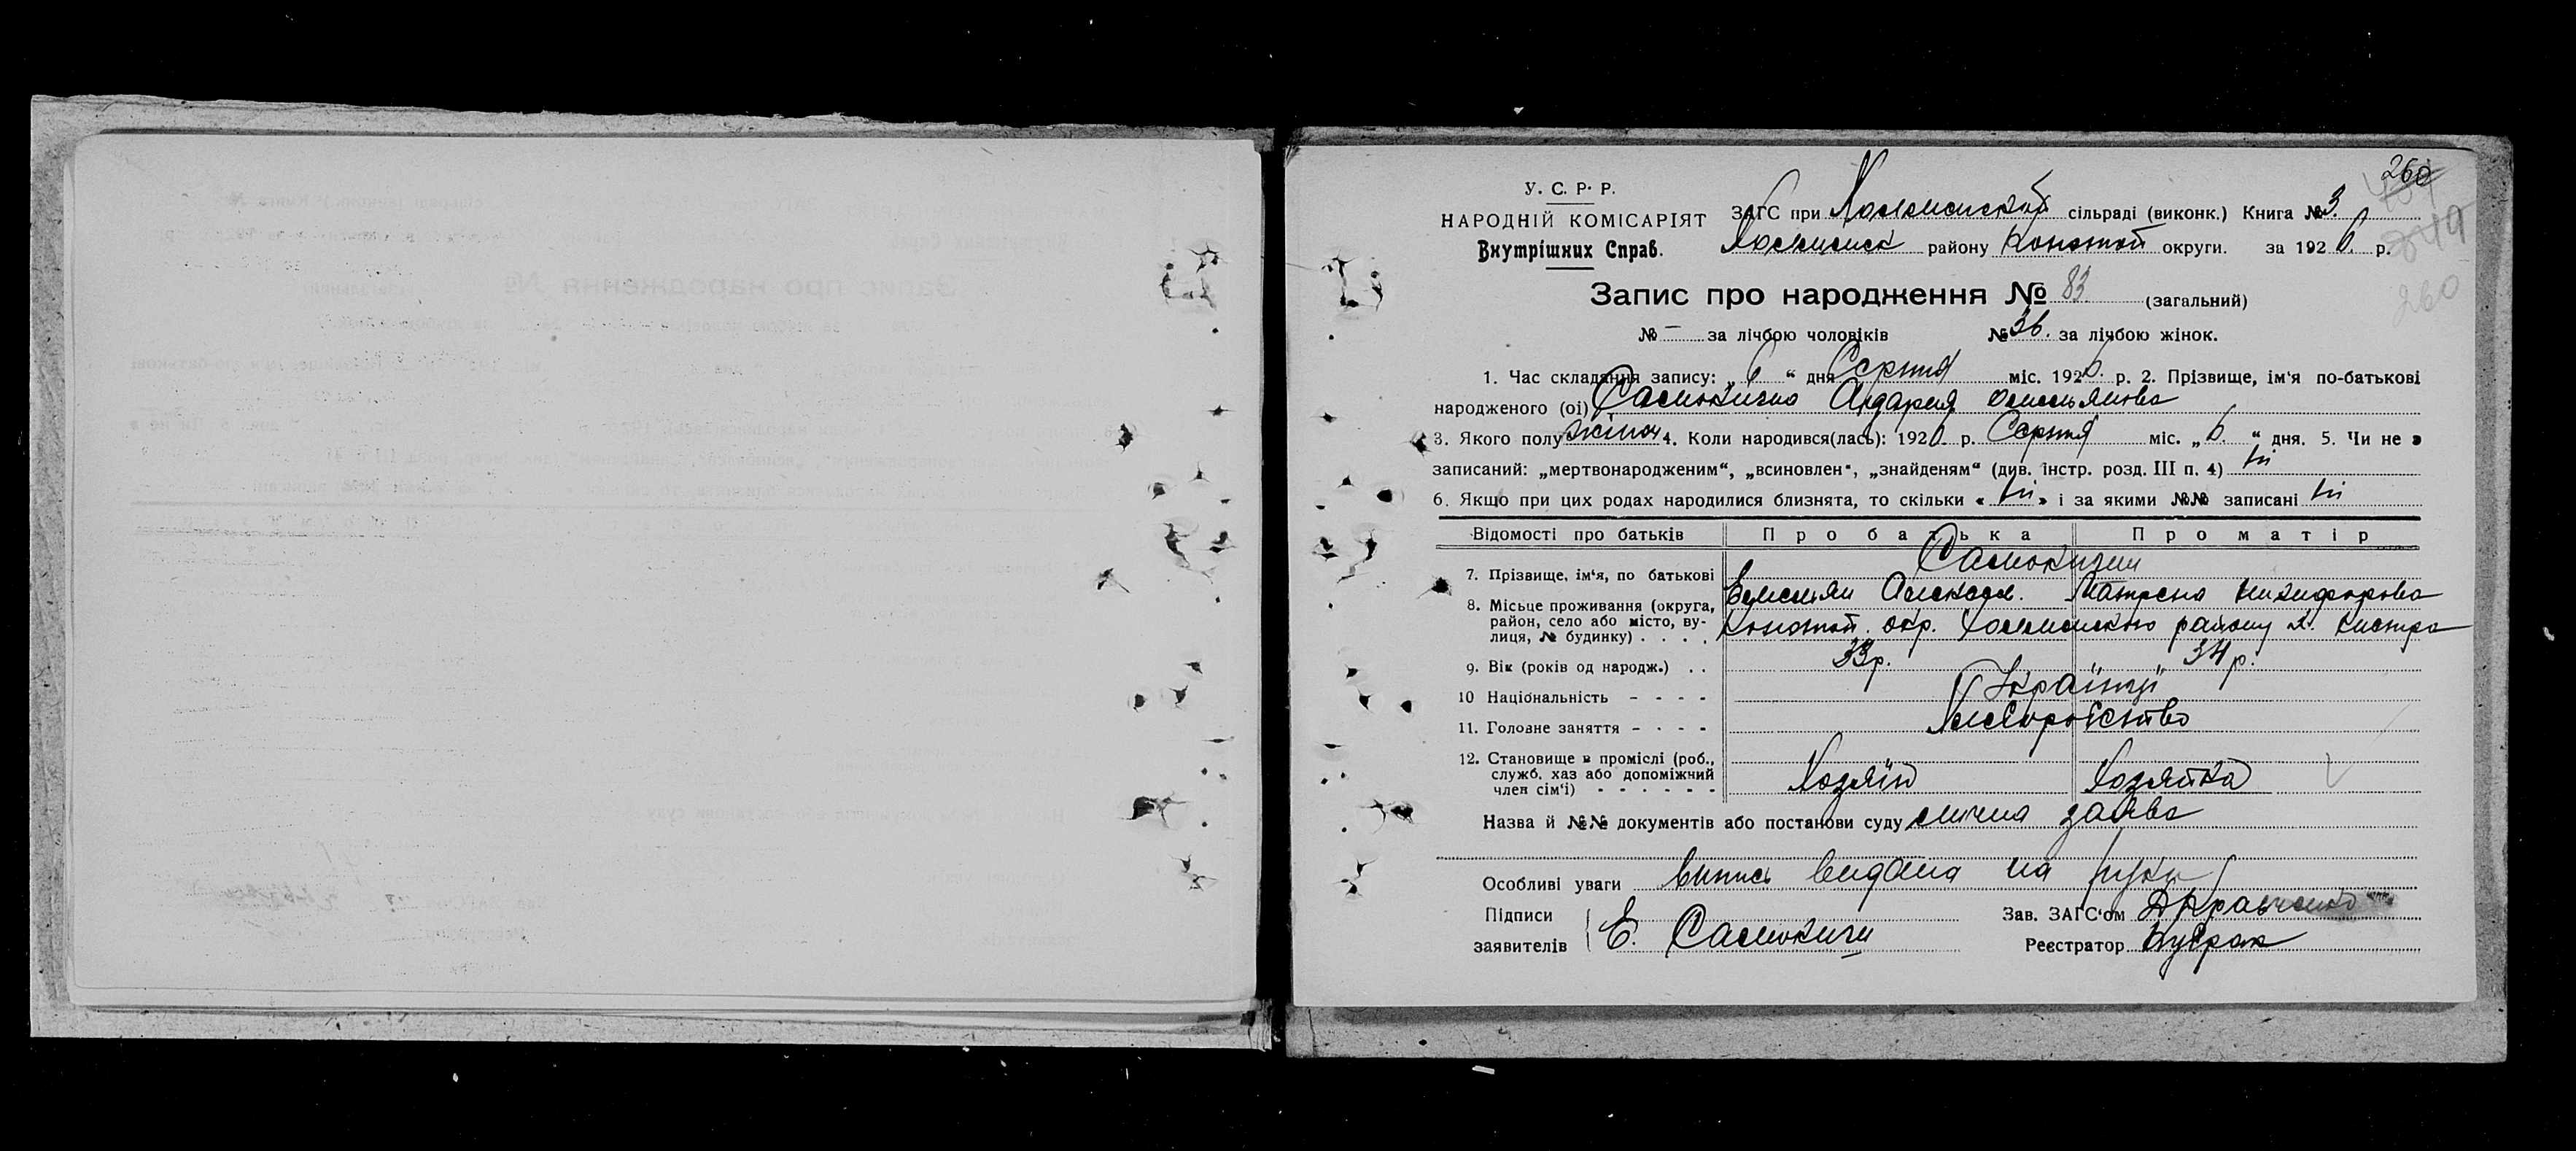 260
У. С. Р. Р.
НАРОДНІЙ КОМІСАРІЯТ
Внутрішних Справ.
ЗАГС при Холменській сільраді (виконк.) Книга № 3.
Холменськ району Конотоп округи. за 1926 р.
260
Запис про народження № 83 (загальний)
№ – за лічбою чоловіків № 36. за лічбою жінок.
1. Час складання запису: „ 6 “ дня Серпня міс. 1926. р. 2. Прізвище, ім‘я по-батькові
народженого (ої) Самокишна Омельянова
3. Якого полу жіноч 4. Коли народився(лась): 1926 р. Серпня міс. „ 6. “ дня. 5. Чи не
записаний: „мертвонародженим“, „всиновлен“, „знайденям“ (див. інстр. розд. III п. 4) ні
6. Якщо при цих родах народилися близнята, то скільки « ні » і за якими №№ записані ні
Відомості про батьків Про батька Про матір
7. Прізвище, ім‘я, по батькові Самокиши
Емельян Александ. Матрена Никифорова
8. Місьце проживання (округа,
район, село або місто, ву-
лиця, № будинку) . . . . Конотоп. окр. Холменського району х.
9. Вік (років од народж.) . . 33р. 34р.
10 Національність - - - - Українці
11. Головне заняття - - - - Хліборобство
12. Становище в проміслі (роб.,
служб. хаз або допоміжний
член сім‘ї) - - - - - - Хозяїн Хозяйка
Назва й №№ документів або постанови суду лична заява
Особливі уваги випись видана на руки
Підписи
заявителів Е. Самокиш
Зав. ЗАГС‘ом Кравченко
Реєстратор